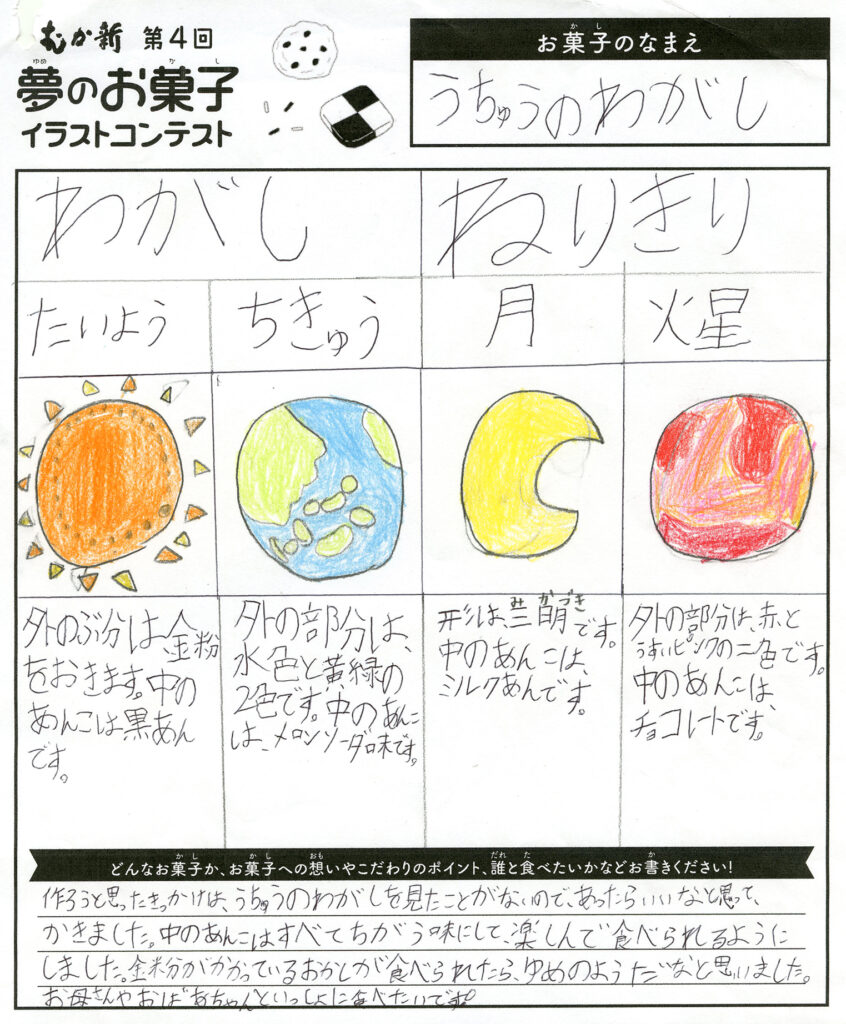 むか新 第4回
夢のお菓子
ゆめ か し
イラストコンテスト
お菓子のなまえ
か し
うちゅうのわがし
わがし ねりきり
たいよう ちきゅう 月 火星
外のぶ分は、金粉
をおきます。中の
あんこは黒あん
です。
外の部分は、
水色と黄緑の
2色です。中のあんこ
は、メロンソーダ味です。
形は、三日月です。
み か づき
中のあんこは、
ミルクあんです。
外の部分は、赤と
うすいピンクの二色です。
中のあんこは、
チョコレートです。
どんなお菓子か、お菓子への想いやこだわりのポイント、誰と食べたいかなどお書きください!
か し か し おも だれ た か
作ろうと思ったきっかけは、うちゅうのわがしを見たことがないので、あったらいいなと思って、
かきました。中のあんこはすべてちがう味にして、楽しんで食べられるように
しました。金粉がかかっているおかしが食べられたら、ゆめのようだなと思いました。
お母さんやおばあちゃんといっしょに食べたいです。